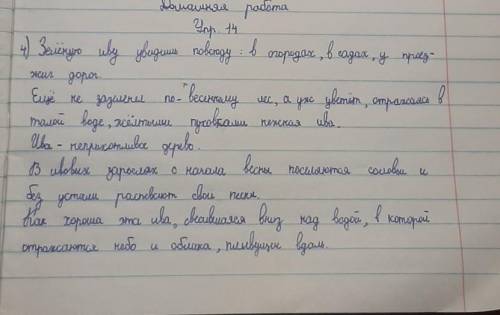 Домашняя работа
Упр. 14
4) Зелёную иву увидишь повсюду: в огородах, в садах, у проез-
жих дорог.
Ещё не зазеленел по-весеннему лес, а уж цветёт, отражаясь в
талой воде, жёлтыми пуховками нежная ива.
Ива - неприхотливое дерево.
В ивовых зарослях с начала весны поселяются соловьи и
без устали распевают свои песни.
Как хороша эта ива, свесившаяся вниз над водой, в которой
отражаются небо и облака, плывущие вдаль.